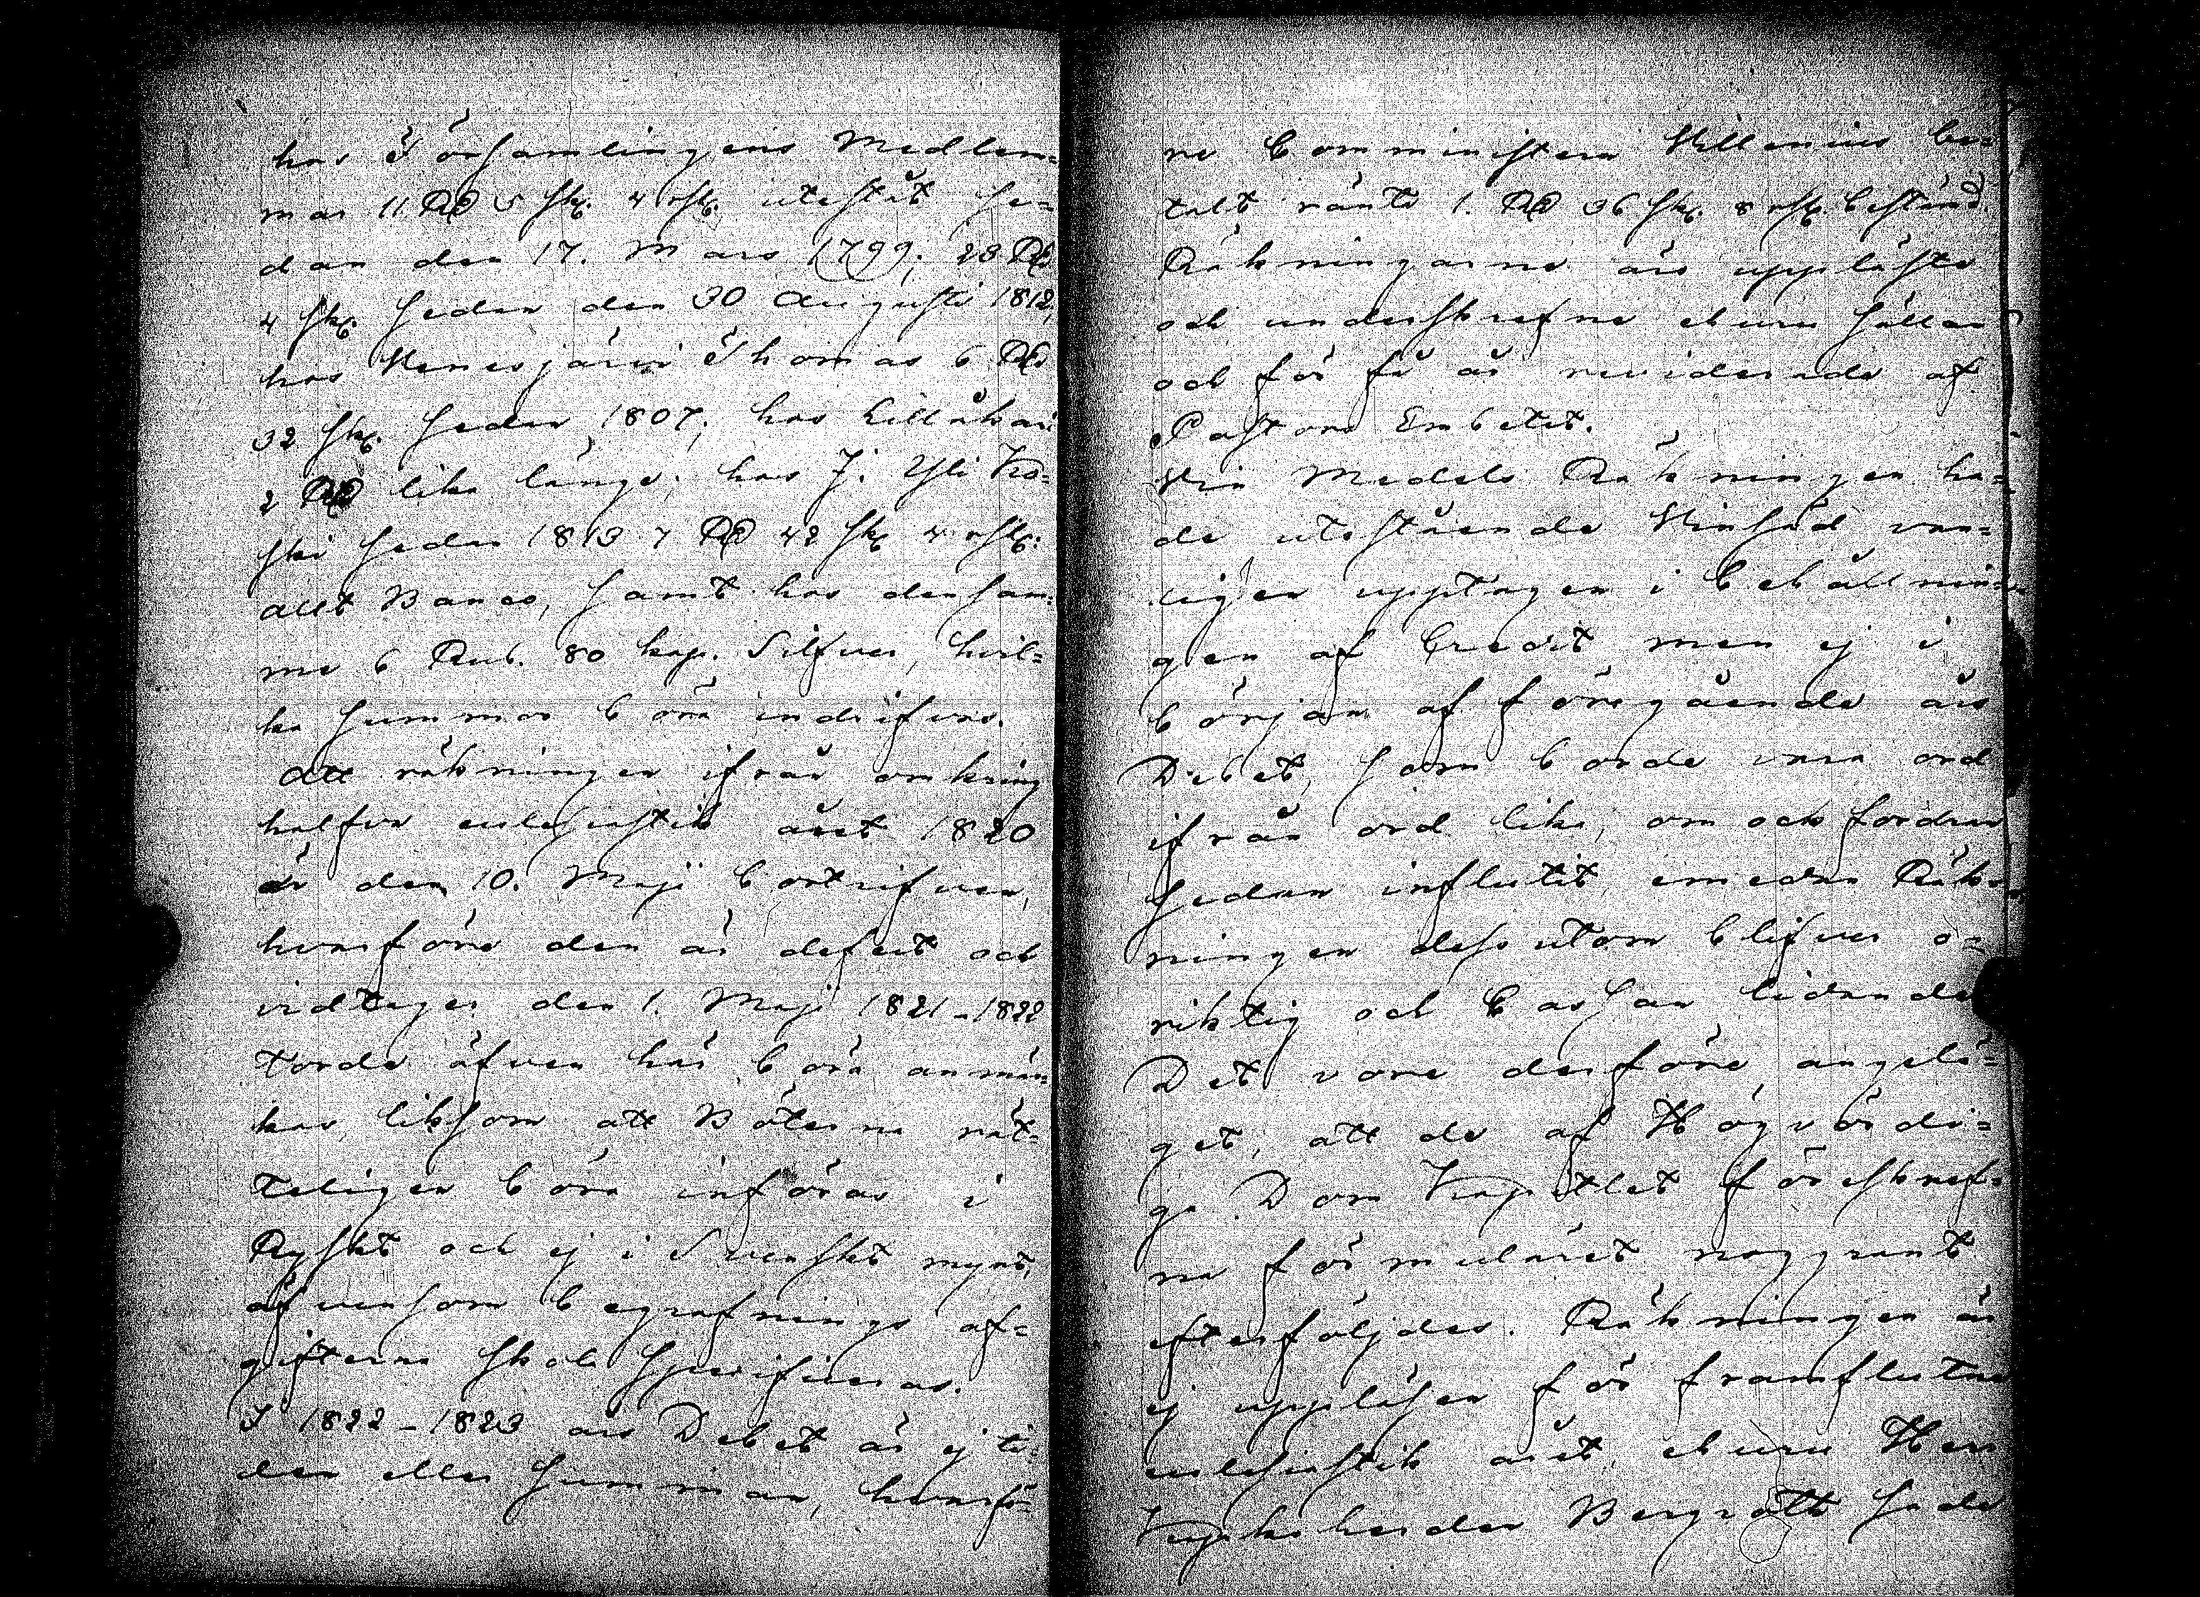 hos Församlingens Medlem=
mar 11 Rd 5 sk. 4 rst. utestått se=
dan den 17. Mars 1799; 28 Rd
4 sk. sedan den 30 Augusti 1812,
hos Venesjärvi Thomas 6 Rd
32 sk. sedan 1807; hos
2 Rd lika länge; hos J. Yli Ko=
ski sedan 1813 7 Rd 42 sk. 4 rst.
allt Banco, samt hos densam=
me 6 Rub. 80 kop. Silfver, hvil=
ka summor böra indrifvas.
Att räkningen ifrån omkring
halfva ecclesiastik året 1820
är den 10. Maji bortrifven,
hvarföre den är defect och
vidtager den 1. Maji 1821-1822
torde äfven här böra anmär=
kas, liksom att Böterna rät=
teligen böra införas i
Ryskt och ej i Svenskt mynt,
äfvensom begrafnings af=
gifterna skola specificeras.
I 1822-1823 års Debet är ej ti=
den eller summan, hvarfö=
re Comministern Villenius be=
talt ränta 1. Rd 36 sk. 8 rst. bestämd.
Räkningarne äro uppläste
och underskrefne ehuru sällan
och för få år reviderade af
Pastors Embetet.
Vin Medels Räkningen ha=
de utestående Vinsäd van=
ligen upptagen i Behållnin=
gen af Credit men ej i
början af föregående års
Debet, som borde vara ord
ifrån ord lika, om ock fordran
sedan influtit, emedan Räk=
ningen dess utom blifver o=
riktig och Cassan lidande
Det vore derföre angelä=
get, att de af Högvördi=
ga Dom Kapitlet föreskref=
na formuläret noggrant
efterföljdes. Räkningen är
ej uppläsen för framflutna
ecclesiastik året, ehuru Herr
Kyrkoherden Bergroth hade